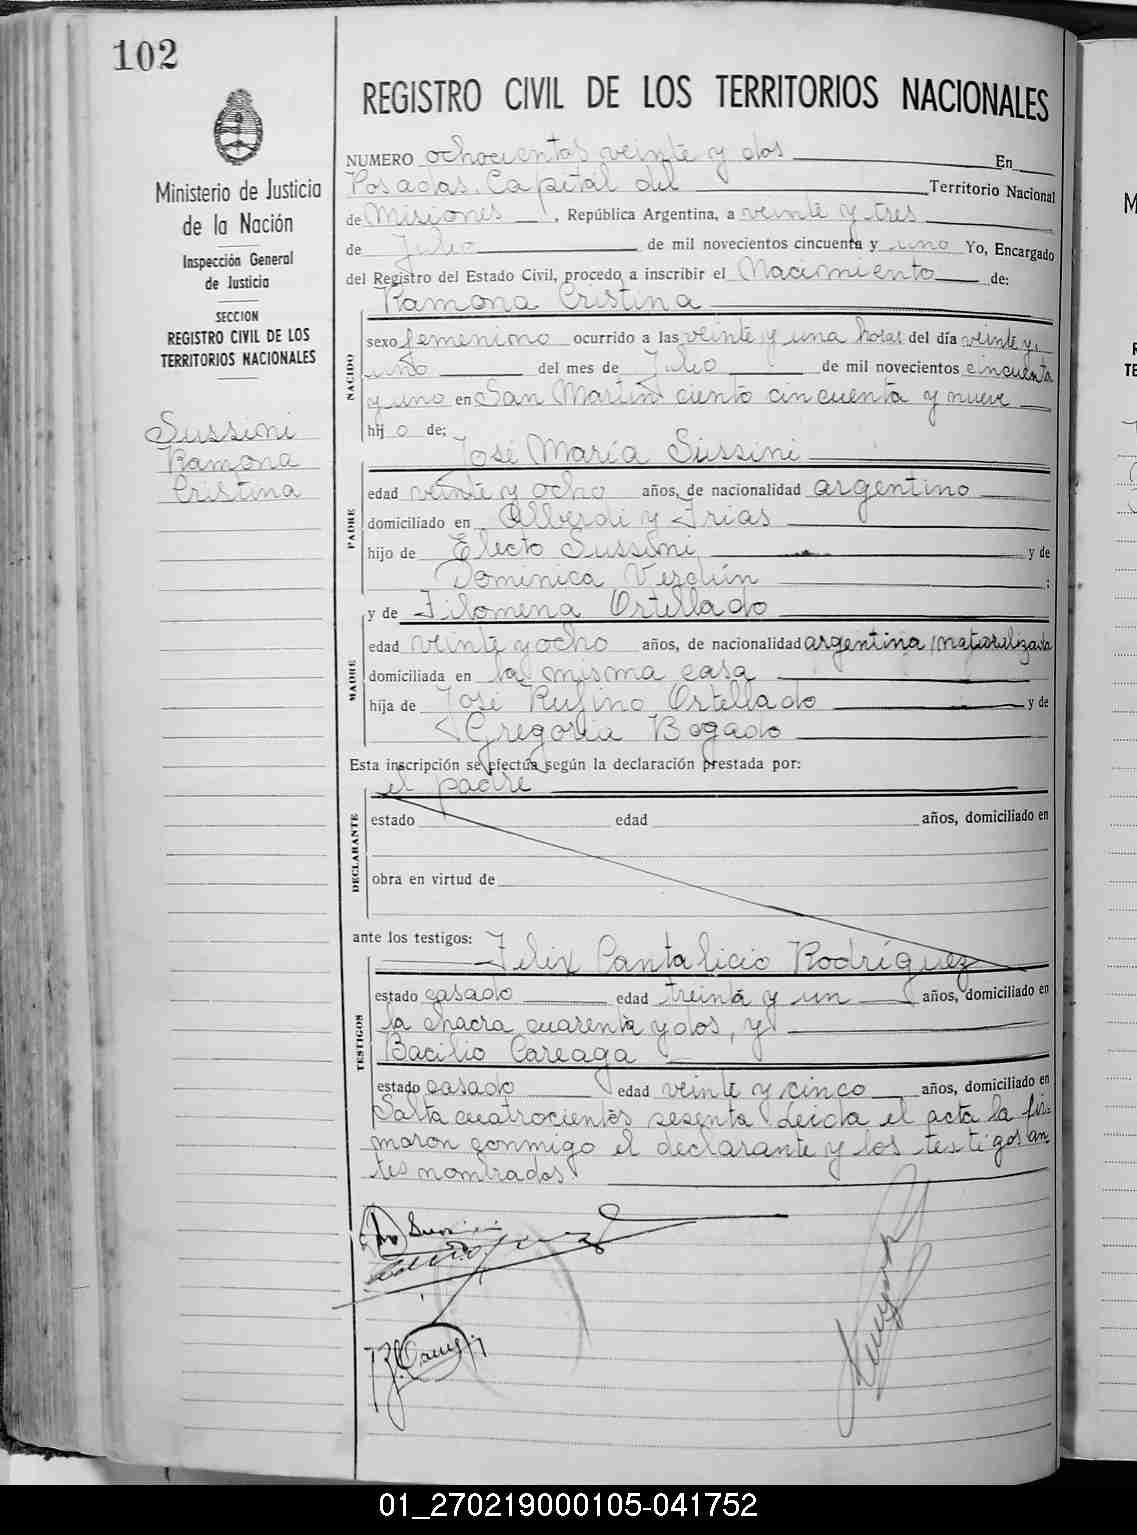 102
Ministerio de Justicia
de la Nación
Inspección General
de Justicia
SECCION
REGISTRO CIVIL DE LOS
TERRITORIOS NACIONALES
Sussini
Ramona
Cristina
REGISTRO CIVIL DE LOS TERRITORIOS NACIONALES
NUMERO ochocientos veinte y dos En
Posadas. Capital del Territorio Nacional
de Misiones, República Argentina, a veinte y tres
de Julio de mil novecientos cincuenta y uno Yo, Encargado
del Registro del Estado Civil, procedo a inscribir el Nacimiento de:
Ramona Cristina
NACIDO
sexo femenino ocurrido a las veinte y una horas del día veinte y
uno del mes de Julio de mil novecientos cincuenta
y uno en San Martín ciento cincuenta y nueve
hijo de:
José María Sussini
PADRE
edad veinte y ocho años, de nacionalidad argentino
domiciliado en Alberdi y Frias
hijo de Electo Sussini y de
Dominica Verdún ;
y de Filomena Ortellado
MADRE
edad veinte y ocho años, de nacionalidad argentina naturalizada
domiciliada en la misma casa
hija de José Rufino Ortellado y de
Gregoria Bogado
Esta inscripción se efectúa según la declaración prestada por:
el padre
DECLARANTE
estado edad años, domiciliado en
obra en virtud de
ante los testigos: Felix Cantalicio Rodríguez
TESTIGOS
estado casado edad treinta y un años, domiciliado en
la chacra cuarenta y dos, y
Bacilio Careaga
estado casado edad veinte y cinco años, domiciliado en
Salta cuatrocientos sesenta. Leida el acta la fir-
maron conmigo el declarante y los testigos an
tes nombrados.
01_270219000105-041752